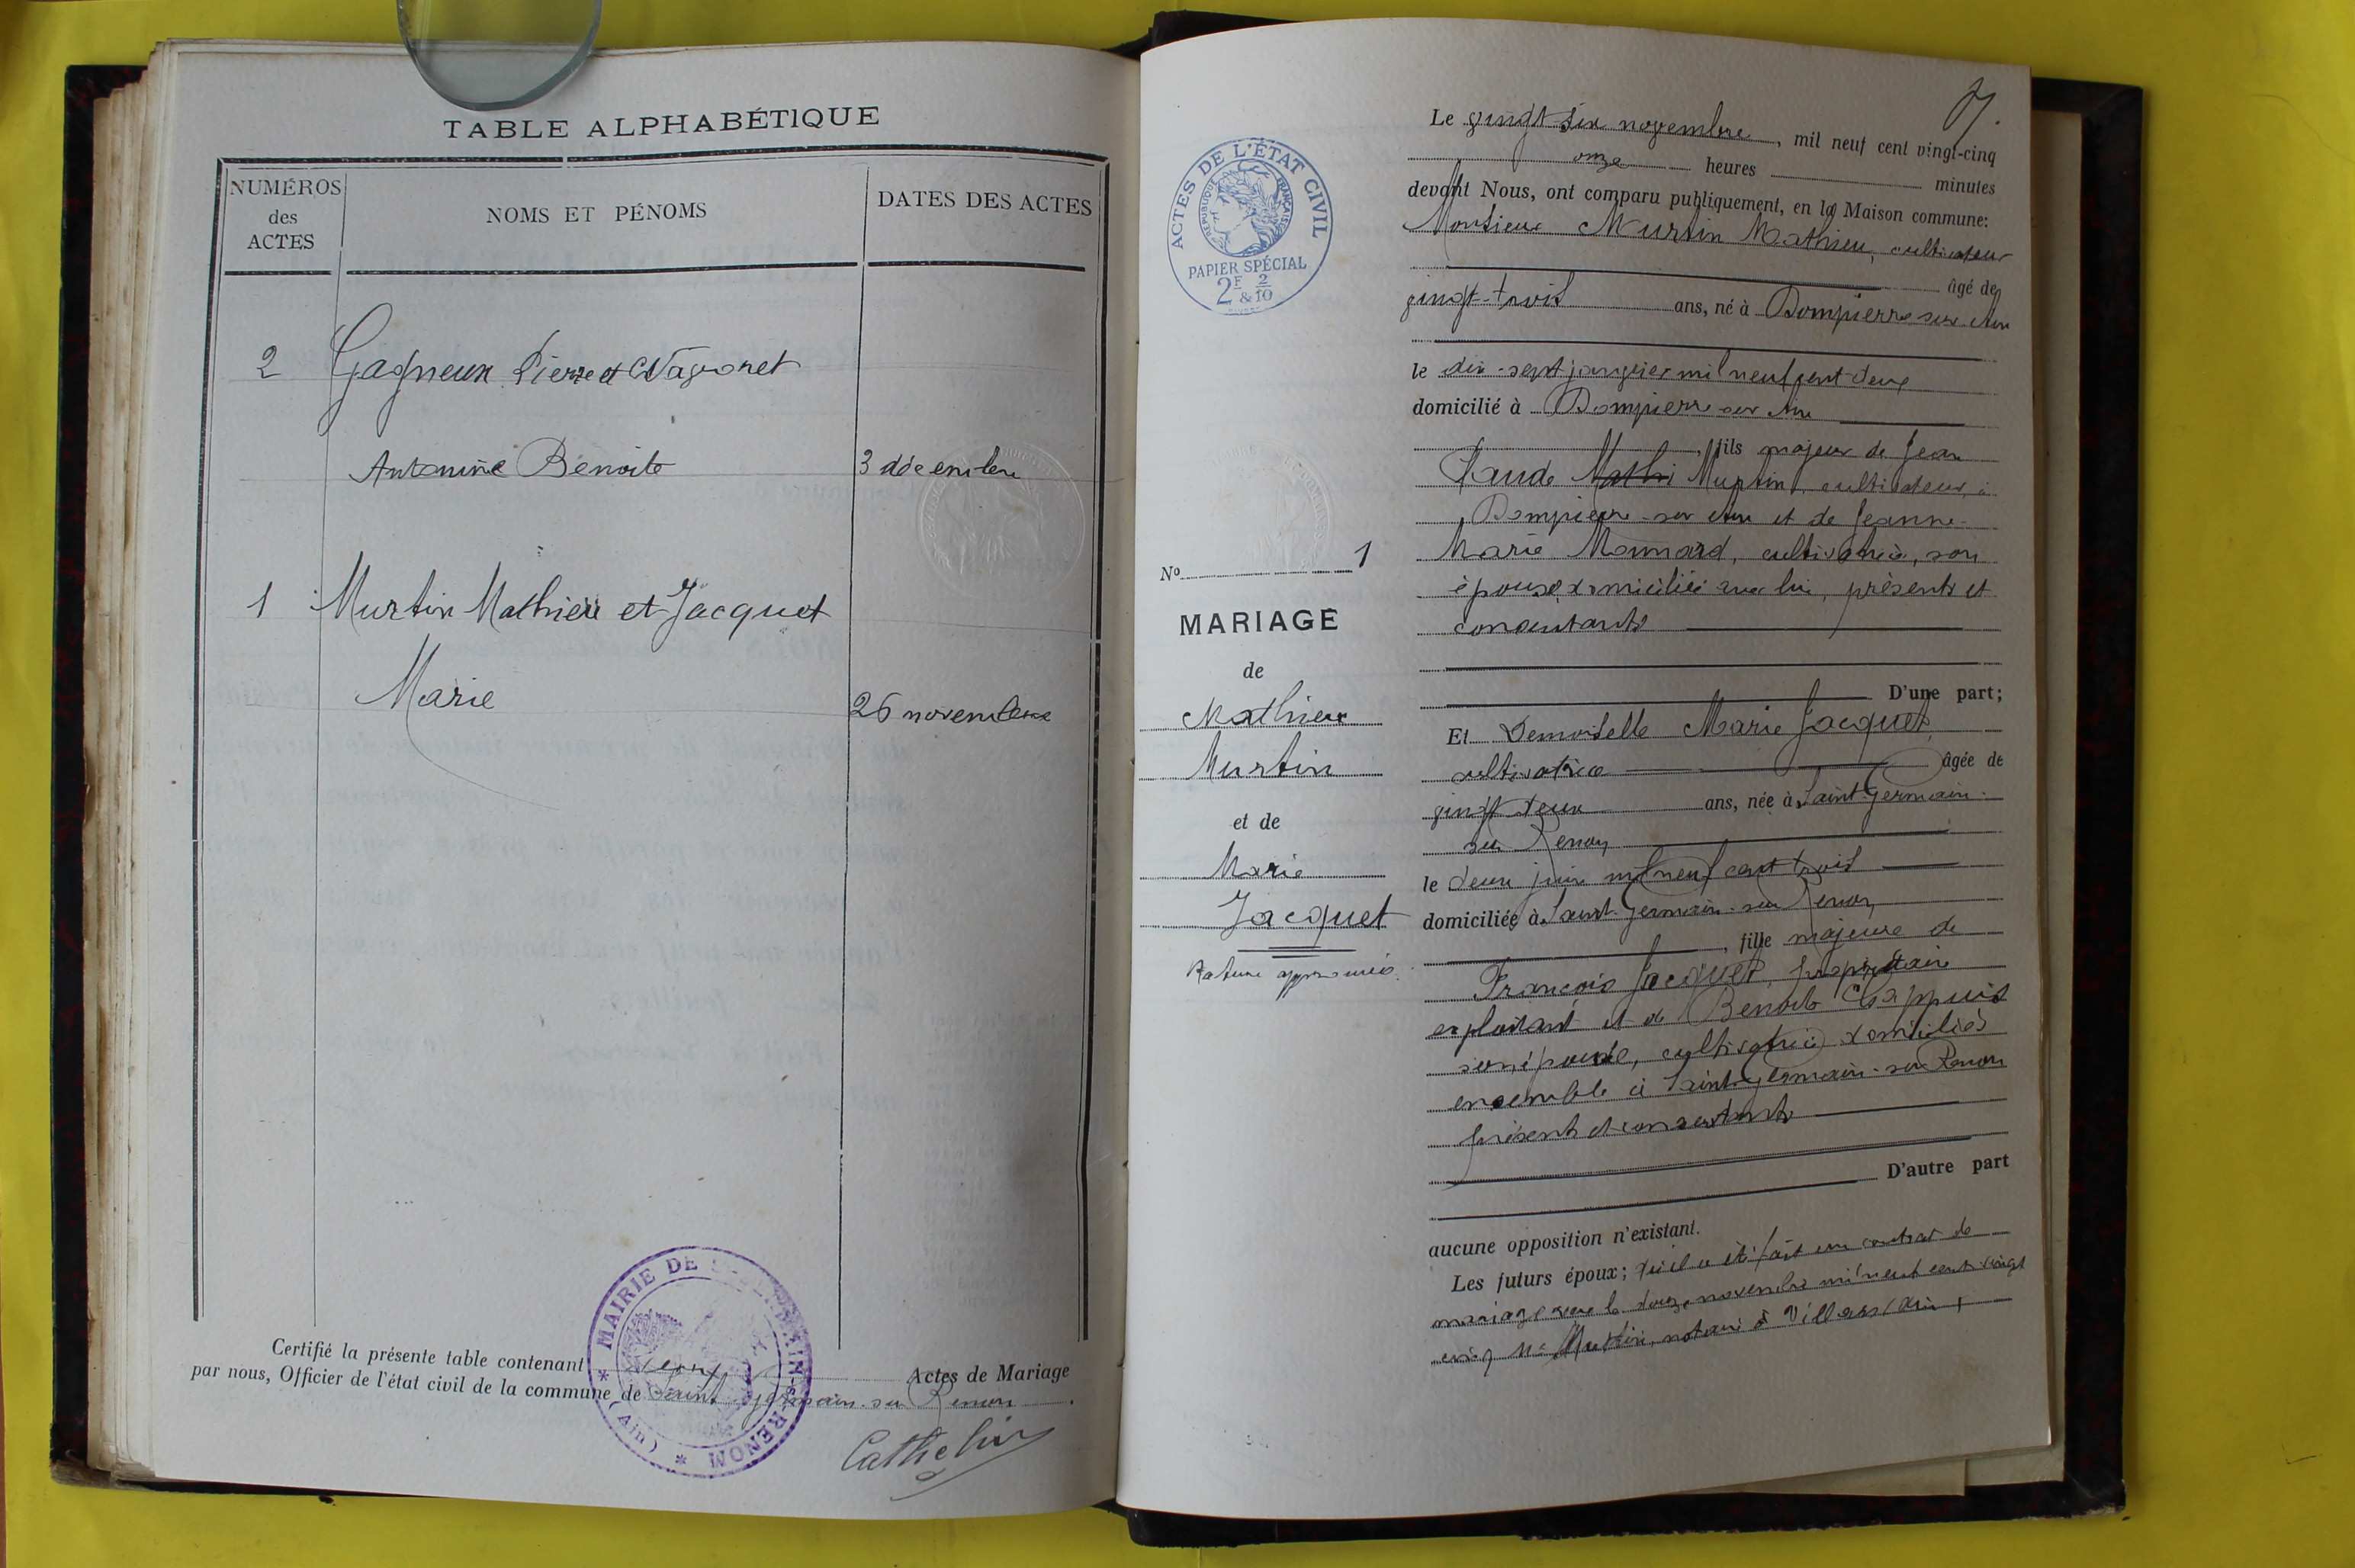 TABLE ALPHABÉTIQUE
NUMÉROS
des
ACTES
NOMS ET PÉNOMS
DATES DES ACTES
2 Gagneux Pierre et
Antonine Benoite 3 décembre
1 Murtin Mathieu et Jacquet
Marie 26 novembre
Certifié la présente table contenant deux Actes de Mariage
par nous, Officier de l'état civil de la commune de Saint Germain sur Renon.
MAIRIE DE RENOM (Ain)
Cathelin
ACTES DE L'ÉTAT CIVIL
RÉPUBLIQUE FRANÇAISE
PAPIER SPÉCIAL
2F & 2/10
No 1
MARIAGE
de
Mathieu
Murtin
et de
Marie
Jacquet
Rature approuvée
Le vingt six novembre, mil neuf cent vingt-cinq
onze heures minutes
devant Nous, ont comparu publiquement, en la Maison commune:
Monsieur Murtin Mathieu, cultivateur
âgé de
vingt-trois ans, né à Dompierre sur Ain
le dix-sept janvier mil neuf cent deux
domicilié à Dompierre sur Ain
, fils majeur de Jean
Claude Mathi Murtin, cultivateur, à
Dompierre sur Ain et de Jeanne-
Marie Monnard, cultivatrice, son
épouse, domiciliée avec lui, présents et
consentants
D'une part;
Et Demoiselle Marie Jacquet,
cultivatrice âgée de
vingt deux ans, née à Saint-Germain-
sur Renon
le deux juin mil neuf cent trois
domiciliée à Saint-Germain-sur Renon
, fille majeure de
François Jacquet, propriétaire
exploitant et de Benoite Chappuis
son épouse, cultivatrice domiciliés
ensemble à Saint-Germain-sur Renon
présents et consentants
D'autre part
aucune opposition n'existant.
Les futurs époux; qu'il a été fait un contrat de
mariage le douze novembre mil neuf cent vingt
cinq Me notaire à Villars (Ain)